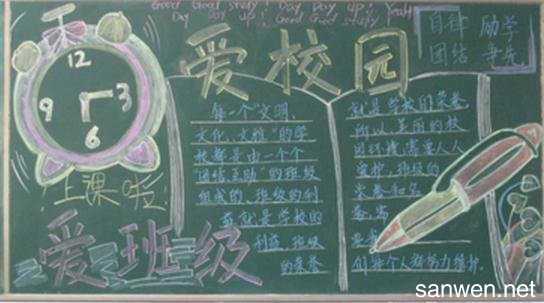 Good Good study! Day Day up! Yeah
Day Day up! Good Good study
爱校园
自律 励学
团结 争先
12
9 3
6
上课啦!
爱班级
每一个“文明、
文化、文雅”的学
校都是由一个个
团结互助”的班级
组成的、班级的利
益就是学校的
利益、班级
的荣誉
就是学校的荣誉
所以美丽的校
园环境需要人人
爱护,班级的
荣誉和名
誉,需
要
们每个人努力维护.
sanwen.net